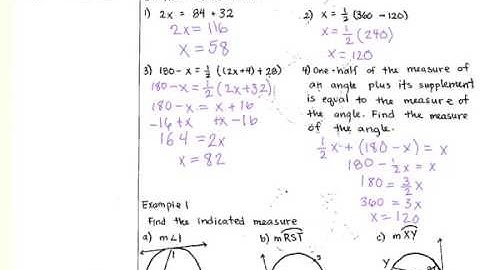 1) 2x = 84 + 32
2x = 116
x = 58
2) x = ½(360 - 120)
x = ½(240)
x = 120
3) 180 - x = ½((2x+4) + 28)
180 - x = ½(2x+32)
180 - x = x + 16
-16 + x +x -16
164 = 2x
x = 82
4) One-half of the measure of
an angle plus its supplement
is equal to the measure of
the angle. Find the measure
of the angle.
½x + (180 - x) = x
180 - ½x = x
180 = 3/2x
360 = 3x
x = 120
Example 1
Find the indicated measure
a) m∠1
b) mRST
c) mXY
1
S
Y